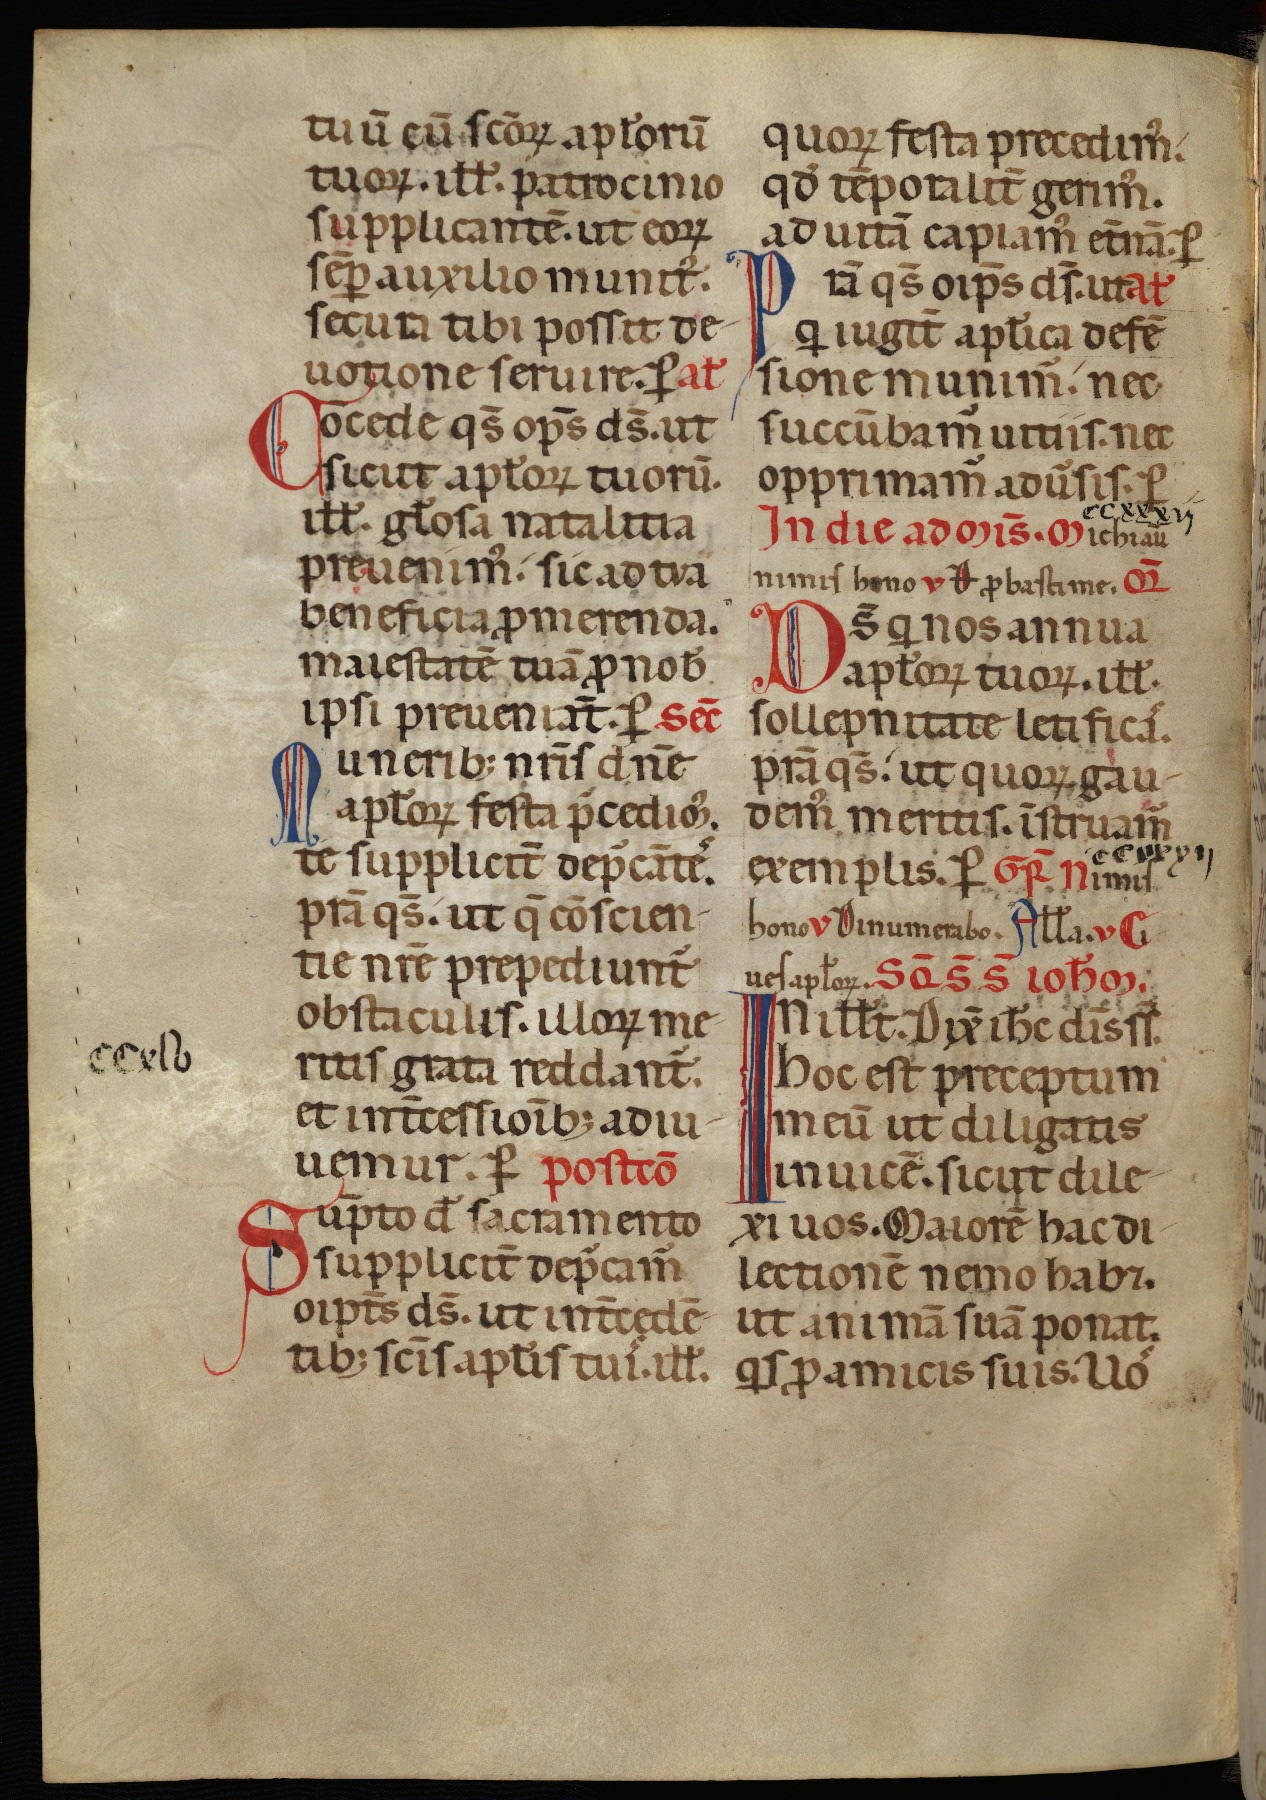 tuū cū scōꝝ aptorū
tuoꝝ. ill̃. patrocinio
supplicantē. ut eoꝝ
sēp̱ auxilio munit᷒.
secura tibi possit de-
uotione seruire. ꝑ at̃
Cōcede qs̄ op̄s ds̄. ut
sicut apl̃oꝝ tuorū.
ill̃. gl̃osa natalitia
preuenim᷒. sic ad tua
beneficia ꝓmerenda.
maiestatē tuā ꝓ nob̃
ipsi preueniāt. ꝑ Sec̄
Munerib; nr̄is dn̄e
apl̃oꝝ festa p̃cedim᷒.
te supplicit̄ dep̃cātes.
prā qs̄. ut q̄ cōscien-
tie nr̄e prepediunt᷒
obstaculis. illoꝝ me-
ritis grata reddant᷒.
et int̄cessiōib; adiu-
uemur. ꝑ postcō
Sūpto d̄ sacramento
supplicit̄ dep̃cam᷒
oip̄ts ds̄. ut int̄cedē-
tib; scīs apl̃is tuis. ill̃.
ccxlv
quoꝝ festa precedim᷒.
qd̄ tēporalit̄ gerim᷒.
ad uitā capiam᷒ et̄nā. ꝑ
Prā qs̄ oip̄s ds̄. ut at̃
qi iugit̄ apl̃ica defē
sione munim᷒. nec
succūbam᷒ uitiis. nec
opprimam᷒ adu᷒sis. ꝑ
ccxxxij
In die ad mis̄. Michi aū
nimis hono v D ꝓbasti me. OR̄
Ds̄ qi nos annua
apl̃oꝝ tuoꝝ. ill̃.
sollepnitate letificas.
prā qs̄. ut quoꝝ gau-
dem᷒ meritis. īstruam᷒
ccxxxij
exemplis. ꝑ GR̄ Nimis
hono v Dinumerabo. All̃a. v Ci
ues apl̃oꝝ. SQ̄ S̄ S̄ ioh̄m.
IN ill̃t. Dix̄ ih̄c dis̄ ss̄.
hoc est preceptum
meū ut diligatis
inuicē. sicut dile-
xi uos. Maiorē hac di
lectionē nemo habꝫ.
ut animā suā ponat.
qis ꝓ amicis suis. Uos